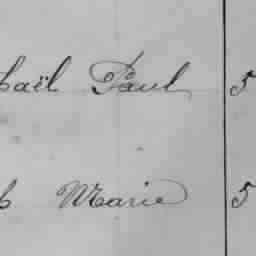 haël Paul 5
h Marie 5